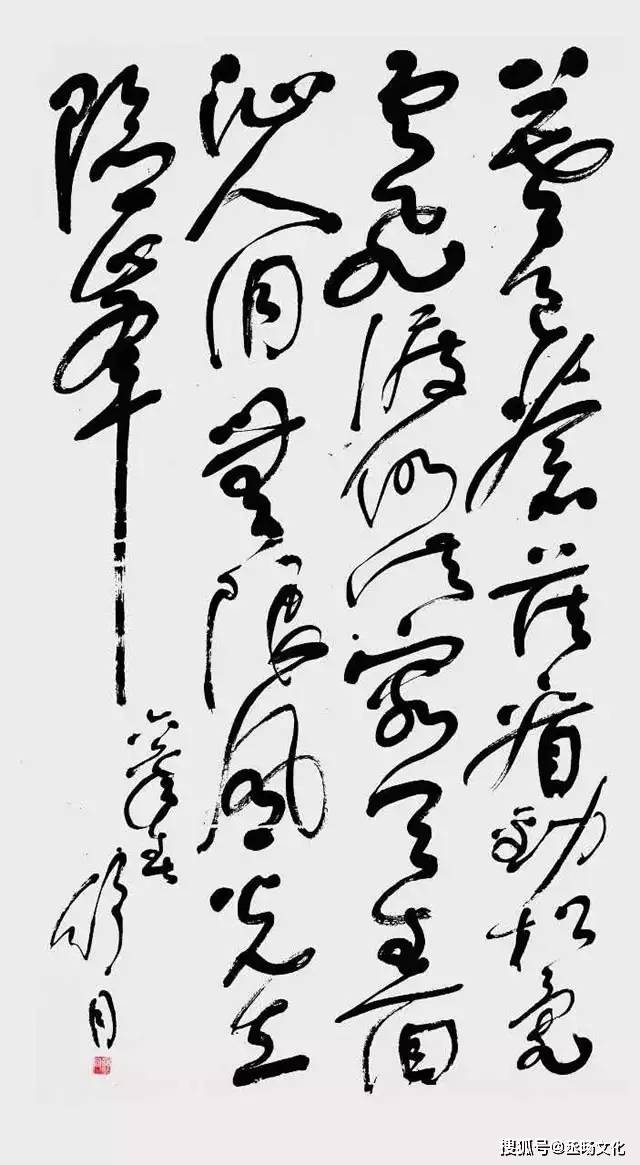 暮色蒼茫看勁松亂
雲飛渡仍從容天生一個
仙人洞無限風光在
險峯
搜狐号@丞旸文化